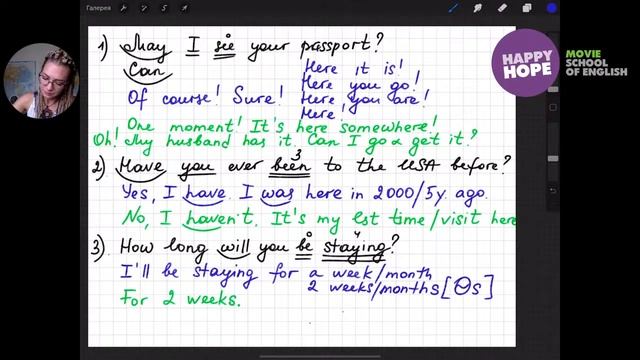 Галерея
HAPPY
HOPE
MOVIE
SCHOOL
OF ENGLISH
1) May I see your passport?
Can
Here it is!
Here you go!
Of course! Sure! Here you are!
Here!
One moment! It's here somewhere!
Oh! My husband has it. Can I go & get it?
3
2) Have you ever been to the USA before?
Yes, I have. I was here in 2000/5y. ago.
No, I haven't. It's my 1st time/visit here
3) How long will you be staying?
I'll be staying for a week/month
2 weeks/months [θs]
For 2 weeks.